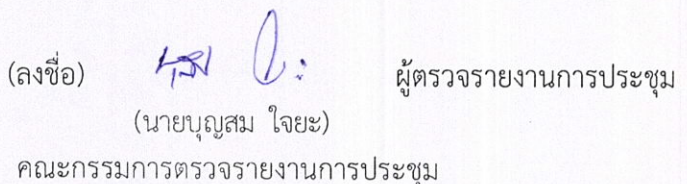 (ลงชื่อ) ผู้ตรวจรายงานการประชุม
(นายบุญสม ใจยะ)
คณะกรรมการตรวจรายงานการประชุม